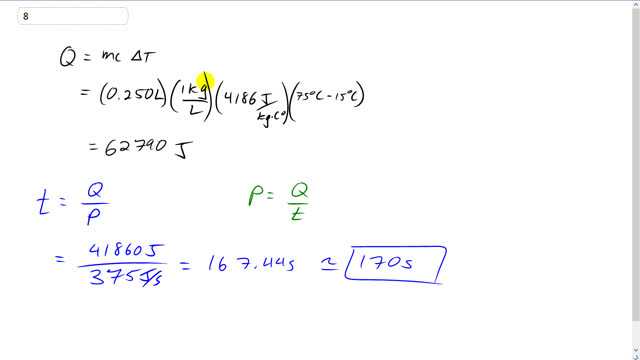 8
Q = mc ΔT
= (0.250L)(1kg/L)(4186 J/kg·C°)(75°C - 15°C)
= 62790 J
t = Q/P P = Q/t
= 41860J/375 J/s = 167.44s ≃ 170s